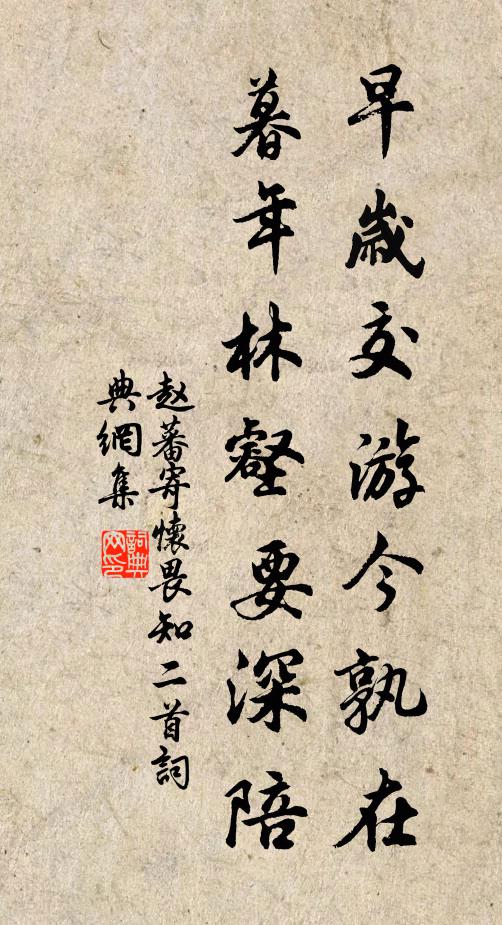 早歲交游今孰在
暮年林壑要深陪
赵蕃寄懷畏知二首詞
典網集
詞典網印